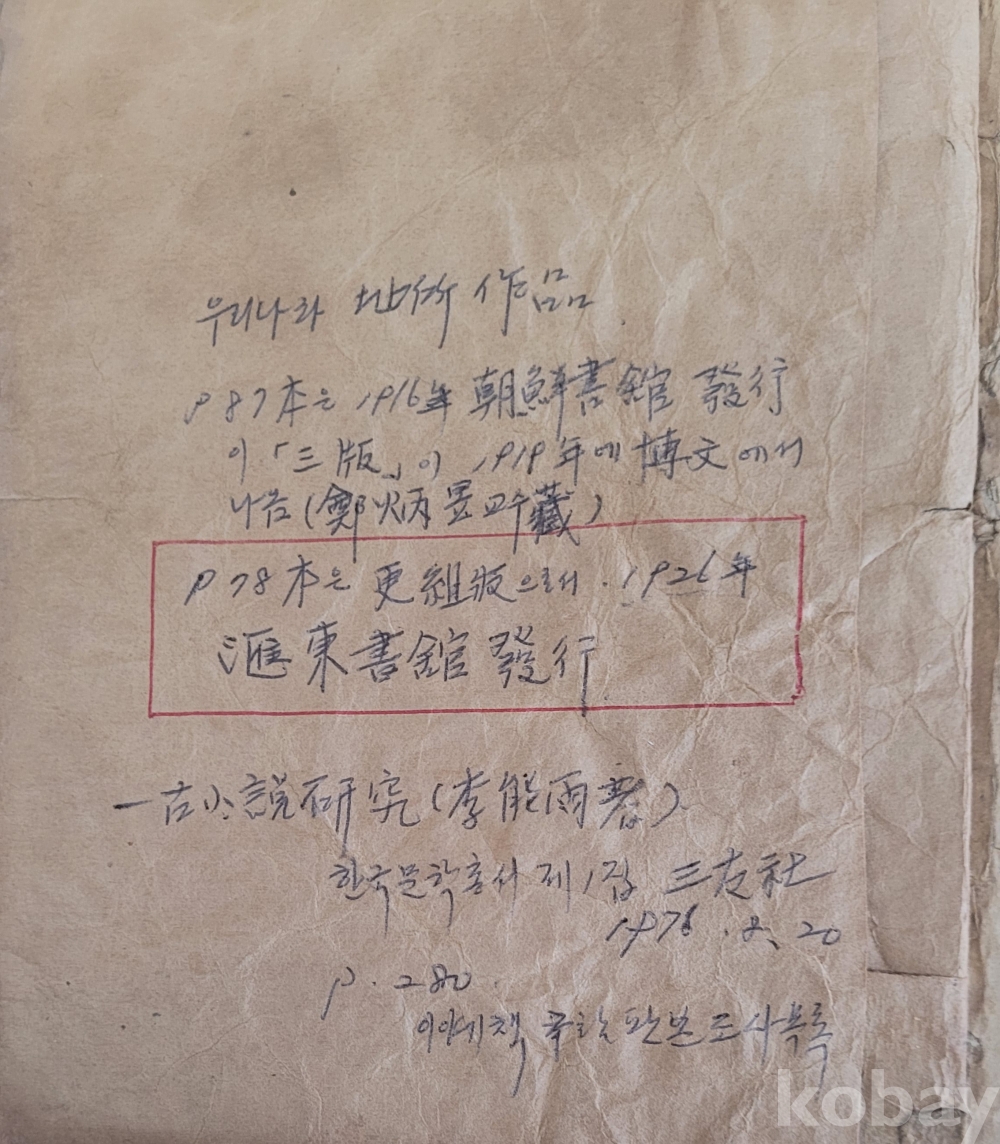 우리나라 地所 作品
P 87本은 1916年 朝鮮書館 發行
이「三版」이 1919年에 博文에서
나옴 (鄭炳昱 교수藏)
P 78本은 更組版으로서. 1926年
滙東書舘 發行
一古小說硏究(李能雨著)
한국문학총서 제1집 三友社
1976. 2. 20
P. 280.
이야기책 판본조사목록
kobay